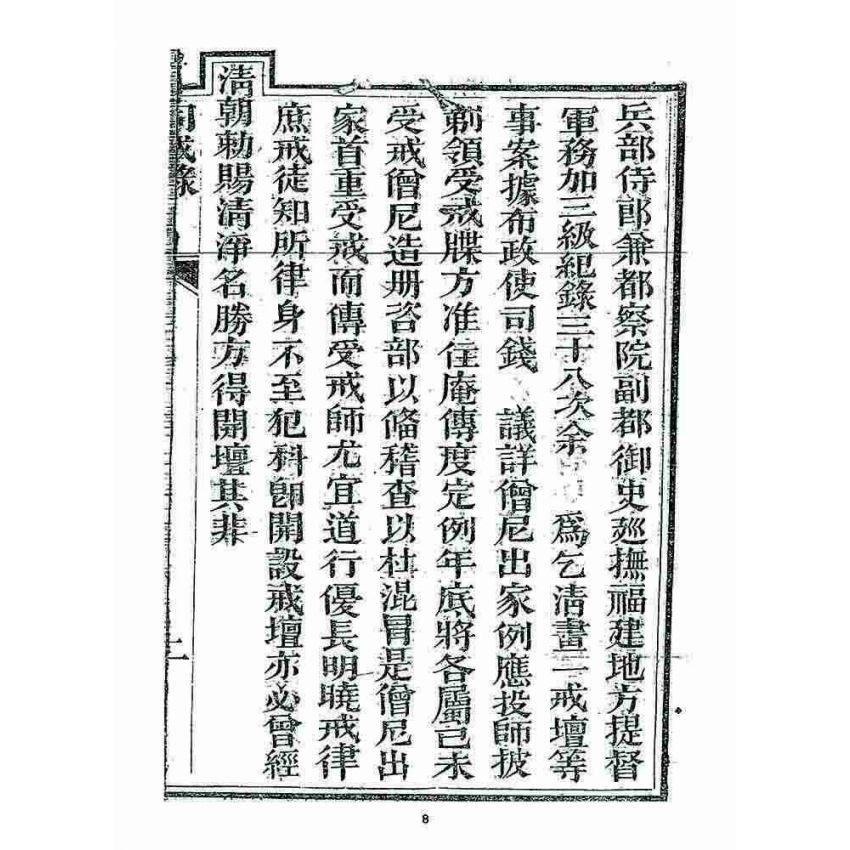 兵部侍郎兼都察院副都御史廵撫福建地方提督
軍務加三級紀錄三十八次余 爲乞淸畫一戒壇等
事案據布政使司錢 議詳僧尼出家例應投師披
剃領受戒牒方准住庵傳度定例年底將各屬已未
受戒僧尼造册咨部以俻稽查以杜混冒是僧尼出
家首重受戒而傳受戒師尤宜道行優長明曉戒律
庶戒徒知所律身不至犯科卽開設戒壇亦必曾經
淸朝勅賜淸淨名勝方得開壇其非
同戒錄
8